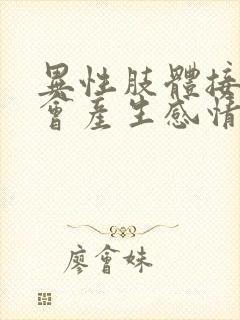 異性肢體接
會產生感情
廖會妹